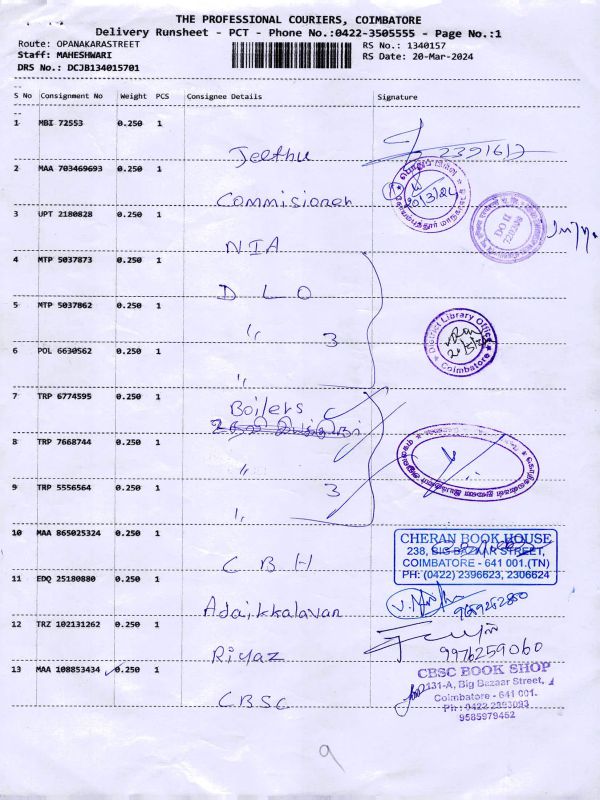 THE PROFESSIONAL COURIERS, COIMBATORE
Delivery Runsheet - PCT - Phone No.:0422-3505555 - Page No.:1
Route: OPANAKARASTREET
RS No.: 1340157
Staff: MAHESHWARI
RS Date: 20-Mar-2024
DRS No.: DCJB134015701
S No Consignment No Weight PCS Consignee Details Signature
1 MBI 72553 0.250 1
Jeethu
2 MAA 703469693 0.250 1
Commisioner 20/3/24
3 UPT 2180828 0.250 1
NIA
4 MTP 5037873 0.250 1
D L O
5 MTP 5037862 0.250 1
" 3
District Library Office
Coimbatore
6 POL 6630562 0.250 1
"
7 TRP 6774595 0.250 1
Boilers
8 TRP 7668744 0.250 1
"
9 TRP 5556564 0.250 1
3
"
10 MAA 865025324 0.250 1
C B H
CHERAN BOOK HOUSE
238, BIG BAZAAR STREET,
COIMBATORE - 641 001.(TN)
PH: (0422) 2396623, 2306624
11 EDQ 25180880 0.250 1
Adaikkalavan
12 TRZ 102131262 0.250 1
Riyaz 9976259060
13 MAA 108853434 0.250 1
CBSC
CBSC BOOK SHOP
131-A, Big Bazaar Street,
Coimbatore - 641 001.
Ph: 0422 2393093
9585979452
9